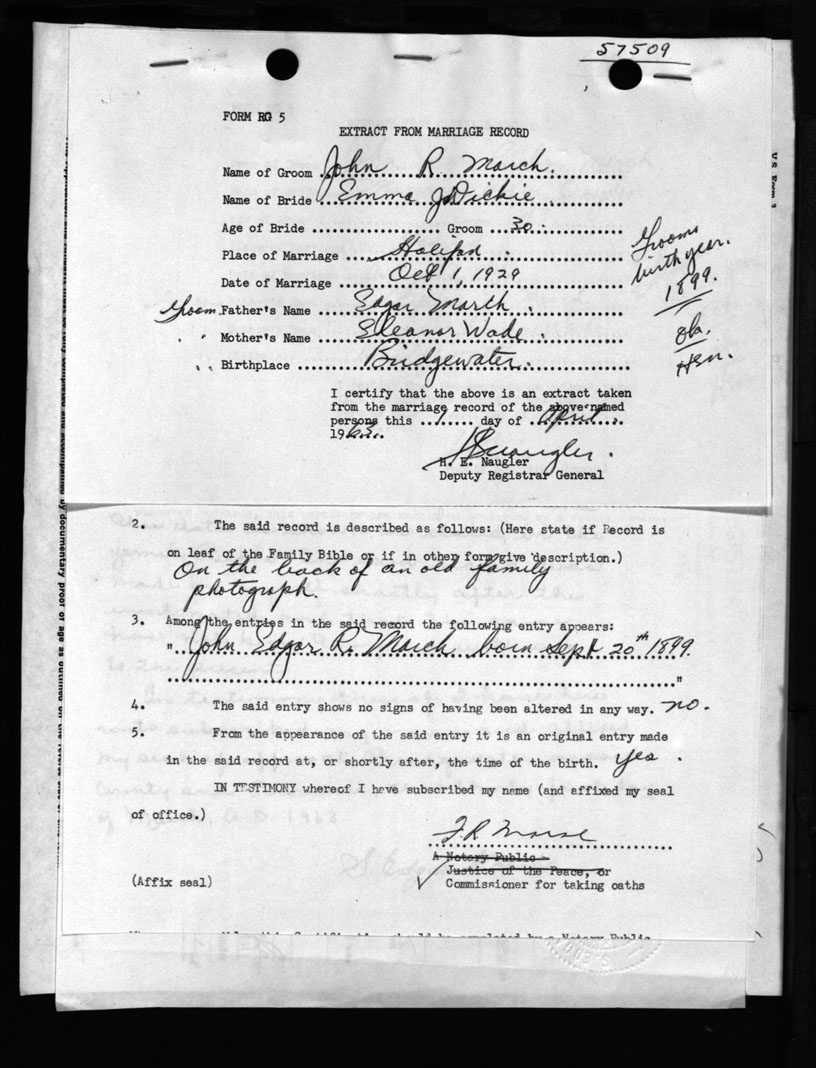 57509
FORM RG 5
EXTRACT FROM MARRIAGE RECORD
Name of Groom John R. March.
Name of Bride Emma J Dickie
Age of Bride Groom 30
Place of Marriage Halifax
Date of Marriage Oct 1, 1929
Groom Father's Name Edgar March
" Mother's Name Eleanor Wade
" Birthplace Bridgewater
Grooms
birth year.
1899.
I certify that the above is an extract taken
from the marriage record of the above named
persons this 1 day of April
1963.
H. E. Naugler
Deputy Registrar General
2. The said record is described as follows: (Here state if Record is
on leaf of the Family Bible or if in other form give description.)
On the back of an old family
photograph.
3. Among the entries in the said record the following entry appears:
" John Edgar R. March born Sept 20th 1899.
"
4. The said entry shows no signs of having been altered in any way. no.
5. From the appearance of the said entry it is an original entry made
in the said record at, or shortly after, the time of the birth. Yes.
IN TESTIMONY whereof I have subscribed my name (and affixed my seal
of office.)
A Notary Public
Justice of the Peace, or
(Affix seal) Commissioner for taking oaths